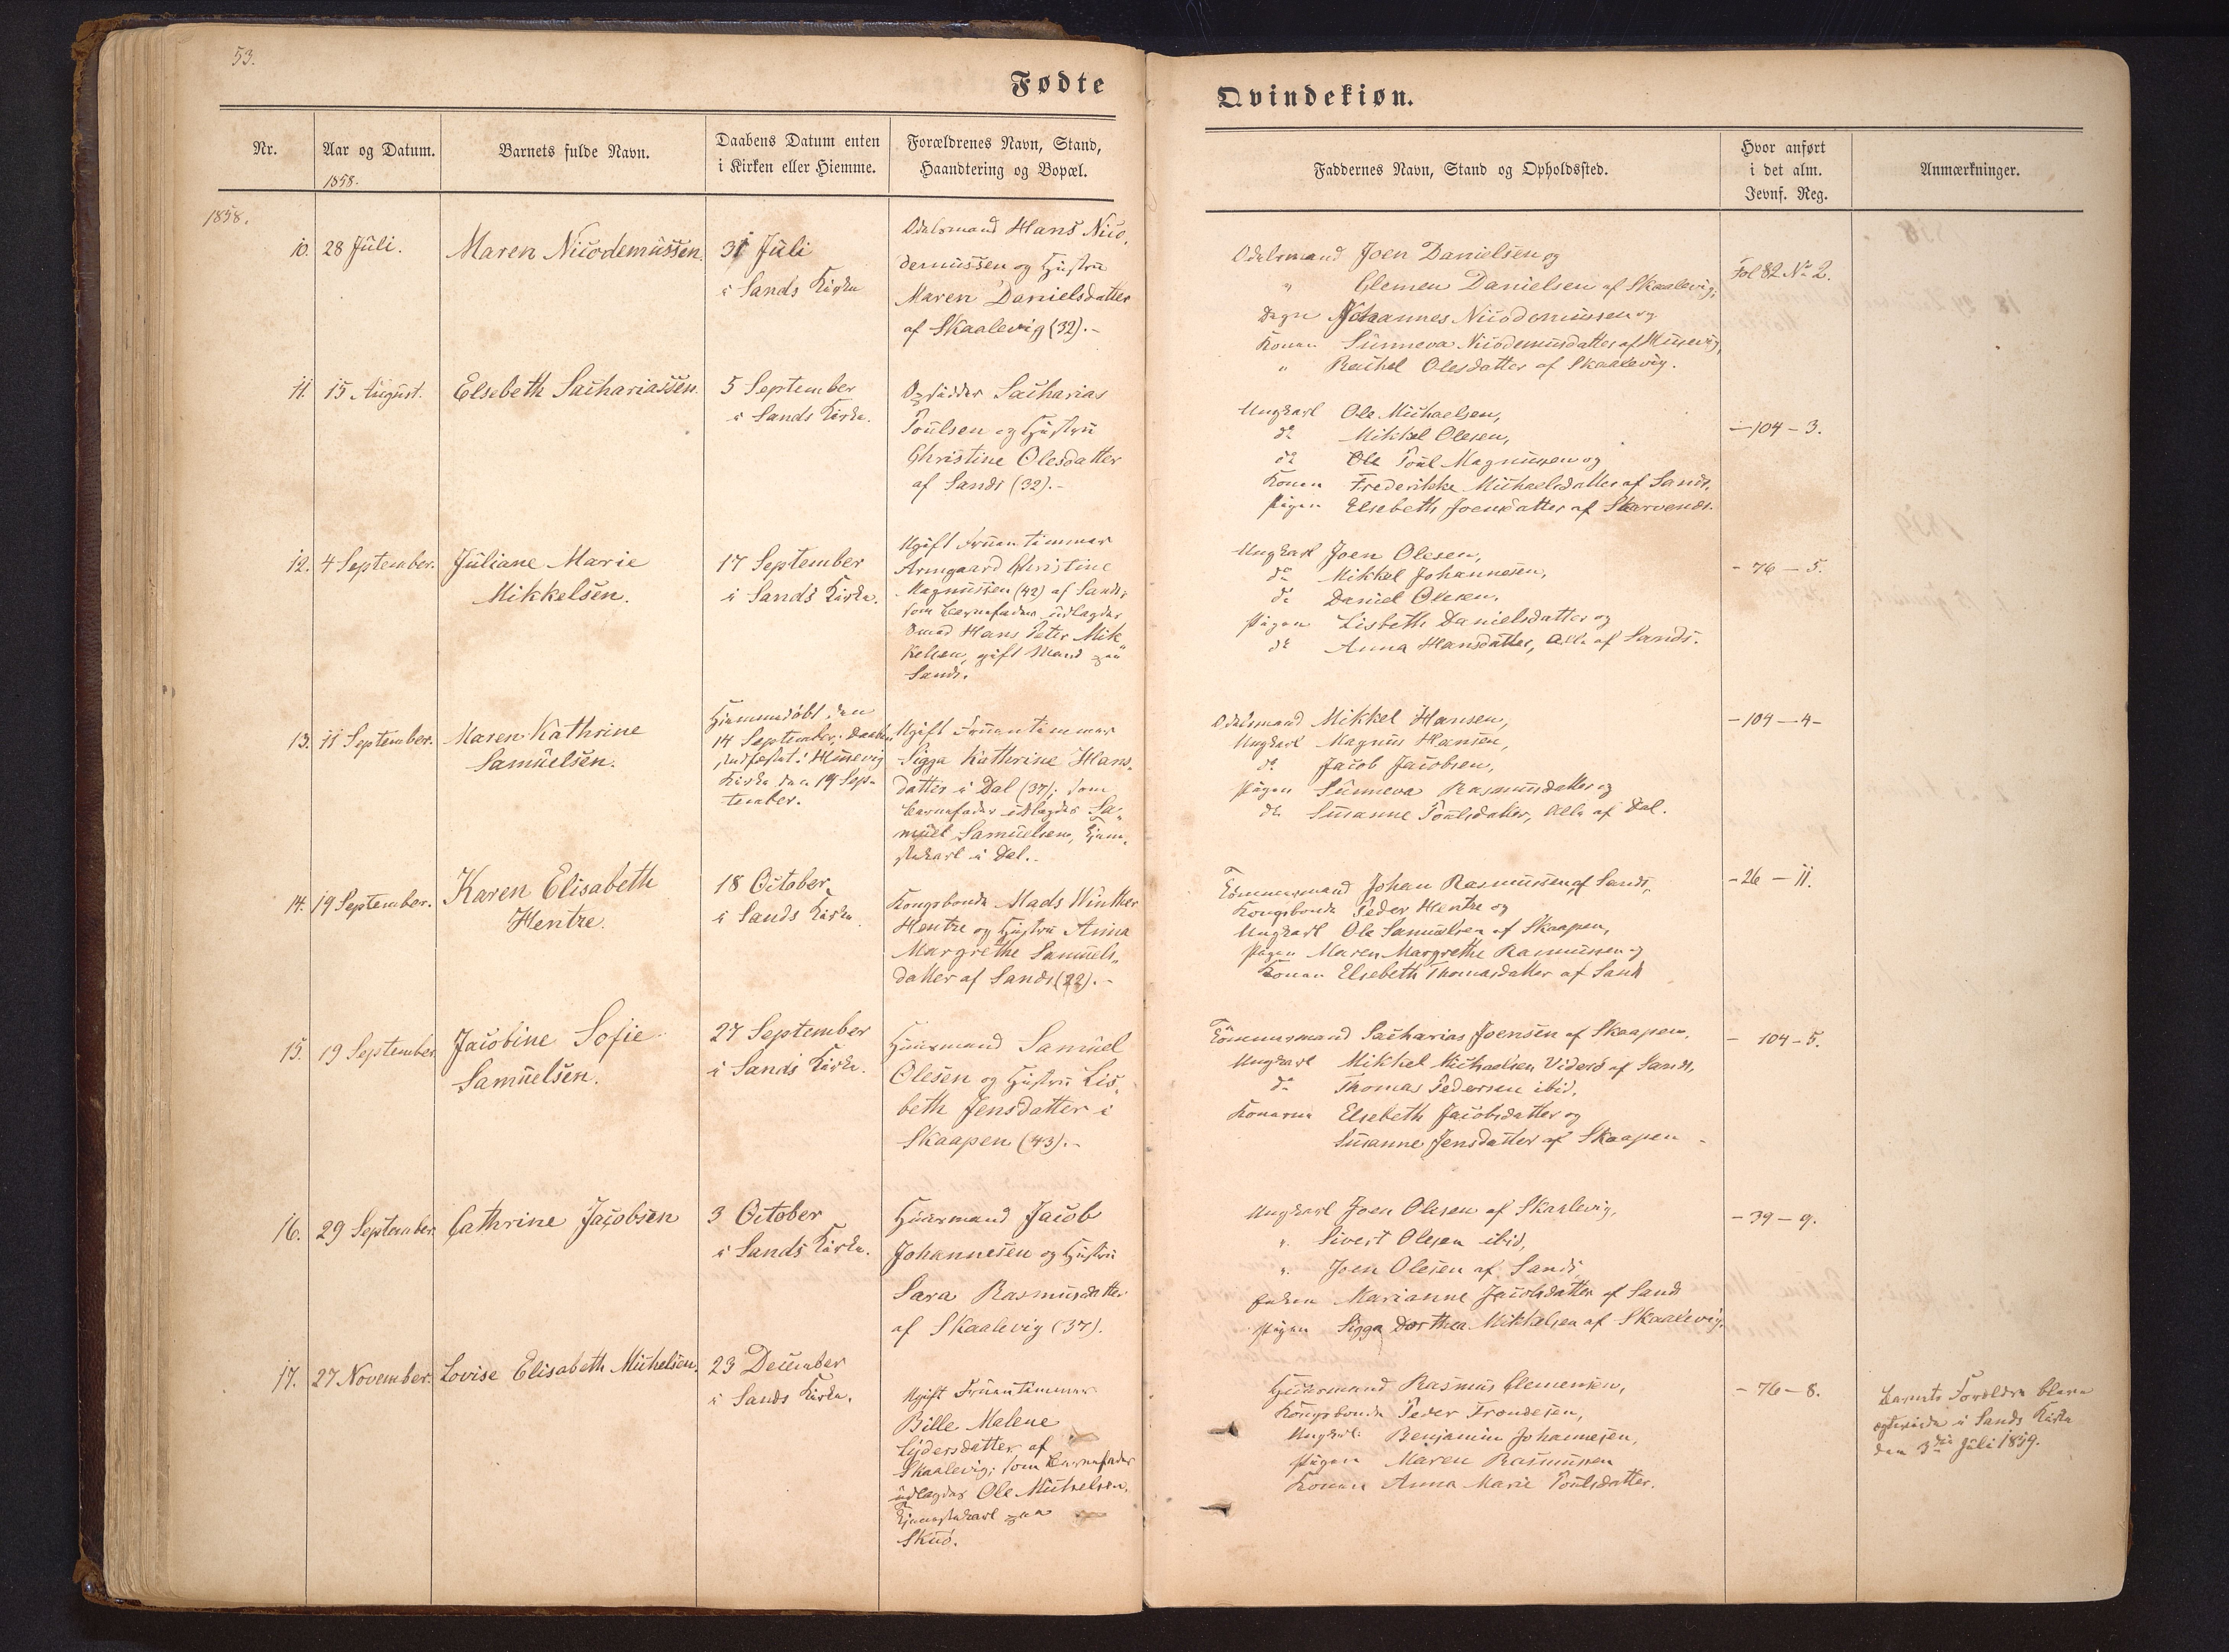 53.
Fødte
Qvindekiøn.
Nr.
Aar og Datum.
1858.
Barnets fulde Navn.
Daabens Datum enten
i Kirken eller Hiemme.
Forældrenes Navn, Stand,
Haandtering og Bopæl.
Faddernes Navn, Stand og Opholdssted.
Hvor anført
i det alm.
Jevnf. Reg.
Anmærkninger.
1858.
10. 28 Juli.
Maren Nicodemussen.
31 Juli
i Sands Kirke
Odelsmand Hans Nico-
demussen og Hustru
Maren Danielsdatter
af Skaalevig (32).-
Odelsmand Joen Danielsen og
" Clemen Danielsen af Skaalevig;
Johannes Nicodemussen og
Konen Sunneva Nicodemusdatter af Husevig,
" Rachel Olesdatter af Skaalevig.
Fol 82 No 2.
11. 15 August.
Elsebeth Sachariassen.
5 September
i Sands Kirke.
Opsidder Sacharias
Poulsen og Hustru
Christine Olesdatter
af Sands (32).-
Ungkarl Ole Michaelsen,
do Mikkel Olesen,
do Ole Poul Magnussen og
Konen Frederikke Michaelsdatter af Sands,
Pigen Elsebeth Joensdatter af Skarvenes.
-104-3.
12. 4 September.
Juliane Marie
Mikkelsen.
17 September
i Sands Kirke.
Ugift Fruentimmer
Armgaard Christine
Magnussen (42) af Sands,
som Barnefader udlagdes
Smed Hans Peter Mik
kelsen, gift Mand paa
Sands.
Ungkarl Joen Olesen,
do Mikkel Johannesen,
do Daniel Olesen,
Pigen Lisbeth Danielsdatter og
do Anna Hansdatter, Alle af Sands.
- 76 - 5.
13. 11 September.
Maren Kathrine
Samuelsen.
Hjemmedøbt den
14 September; Daaben
stadfæstet i Husevig
Kirke den 19 Sep-
tember.
Ugift Fruentimmer
Sigga Kathrine Hans-
datter i Dal (37); som
Barnefader udlagdes Sa-
muel Samuelsen, Tjene-
stekarl i Dal.
Odelsmand Mikkel Hansen,
Ungkarl Magnus Hansen,
do Jacob Jacobsen,
Pigen Sunneva Rasmusdatter og
do Susanne Poulsdatter, Alle af Dal.
-104-4-
14. 19 September.
Karen Elisabeth
Hentze.
18 October
i Sands Kirke
Kongsbonde Mads Winther
Hentze og Hustru Anna
Margrethe Samuels-
datter af Sands (22).-
Tømmermand Johan Rasmussen af Sands,
Kongsbonde Peder Hentze og
Ungkarl Ole Samuelsen af Skaapen,
Pigen Maren Margrethe Rasmussen og
Konen Elsebeth Thomasdatter af Sand
-26 - 11.
15. 19 September
Jacobine Sofie
Samuelsen.
27 September
i Sands Kirke.
Huusmand Samuel
Olesen og Hustru Lis
beth Jensdatter i
Skaapen (43).-
Tømmermand Sacharias Joensen af Skaapen,
Ungkarl Mikkel Michaelsen Viderø af Sands,
do Thomas Pedersen ibid,
Konerne Elsebeth Jacobsdatter og
Susanne Jensdatter af Skaapen
- 104-5.
16. 29 September
Cathrine Jacobsen
3 October
i Sands Kirke.
Huusmand Jacob
Johannesen og Hustru
Sara Rasmusdatter
af Skaalevig (37).
Ungkarl Joen Olesen af Skaalevig,
". Sivert Olesen ibid,
". Joen Olesen af Sands
Enken Marianne Jacobsdatter af Sand
Pigen Sigga Dorthea Mikkelsen af Skaalevig.
-39-9.
17. 27 November.
Lovise Elisabeth Michelsen.
23 December
i Sands Kirke.
Ugift Fruentimmer
Bille Malene
Ejdersdatter af
Skaalevig; som Barnefader
udlagdes Ole Michelsen,
Tjenestekarl paa
Skuø.
Huusmand Rasmus Clemensen,
Kongsbonde Peder Trondesen,
Ungkarl Benjamin Johannesen,
Pigen Maren Rasmussen
Konen Anna Marie Poulsdatter.
-76-8.
Barnets Forældre bleve
ægteviede i Sands Kirke
den 3die Juli 1859.